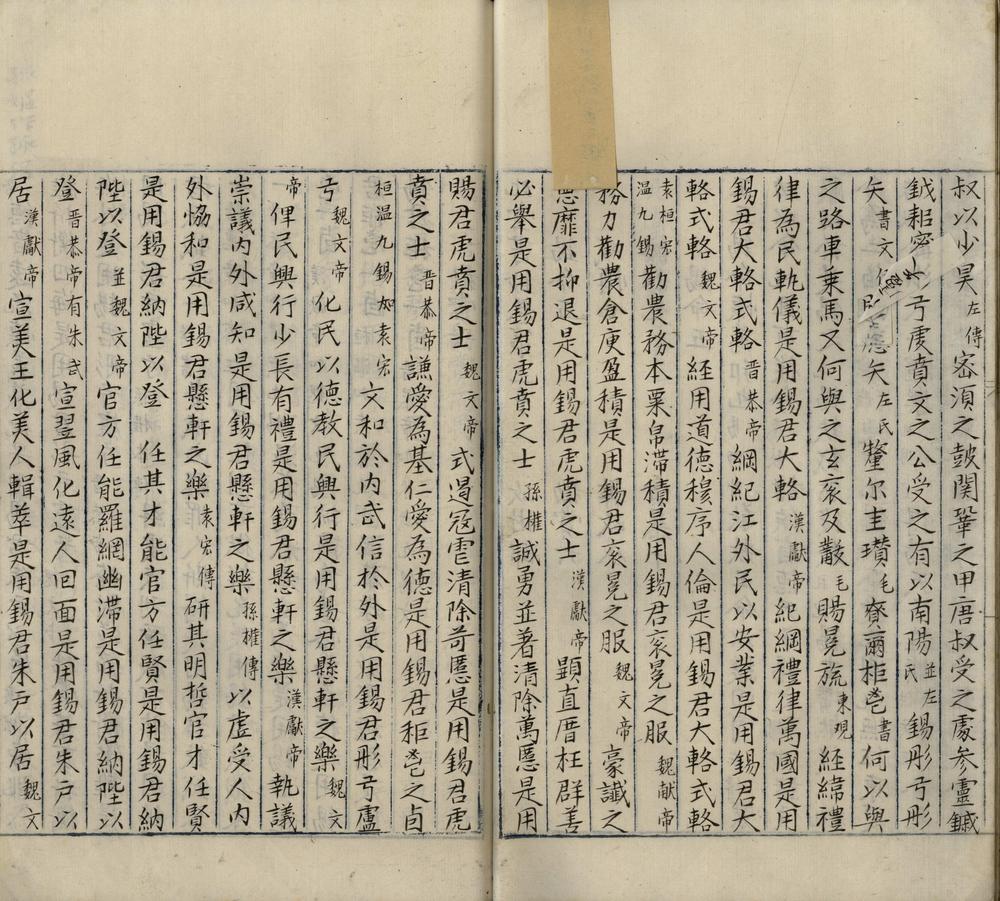 叔以少昊左傳密須之鼓闕鞏之甲唐叔受之處参虛鏚
鉞秬鬯弓虎賁文之公受之有以南陽並左氏錫彤弓彤
矢書文矢左氏釐尔圭瓚毛賚爾秬鬯書何以與
之路車乗馬又何與之玄衮及黻毛賜冕旒東观經緯禮
律為民軌儀是用錫君大輅漢獻帝紀綱禮律萬國是用
錫君大輅式輅晋恭帝綱紀江外民以安業是用錫君大
輅式輅魏文帝經用道德穆序人倫是用錫君大輅式輅
袁桓宏温九錫勸農務本粟帛滞積是用錫君衮冕之服魏献帝
務力勸農倉庾盈積是用錫君衮冕之服魏文帝豪讖之
慝靡不抑退是用錫君虎賁之士漢獻帝顕直厝枉群善
必舉是用錫君虎賁之士孫權誠勇並著清除萬慝是用
賜君虎賁之士魏文帝式遏冦雹清除苛慝是用錫君虎
賁之士晋恭帝謙愛為基仁愛為德是用錫君秬鬯之卣
桓温九錫袁宏文和於内武信於外是用錫君彤弓盧
弓魏文帝化民以德教民興行是用錫君懸軒之樂魏文
帝俾民興行少長有禮是用錫君懸軒之樂漢獻帝執議
崇議内外咸知是用錫君懸軒之樂孫權傳以虚受人内
外恊和是用錫君懸軒之樂袁宏傳研其明哲官才任賢
是用錫君納陛以登任其才能官方任賢是用錫君納
陛以登並魏文帝官方任能羅網幽滞是用錫君納陛以
登晋恭帝有朱武宣翌風化遠人回面是用錫君朱户以
居漢獻帝宣美王化美人輯萃是用錫君朱户以居魏文